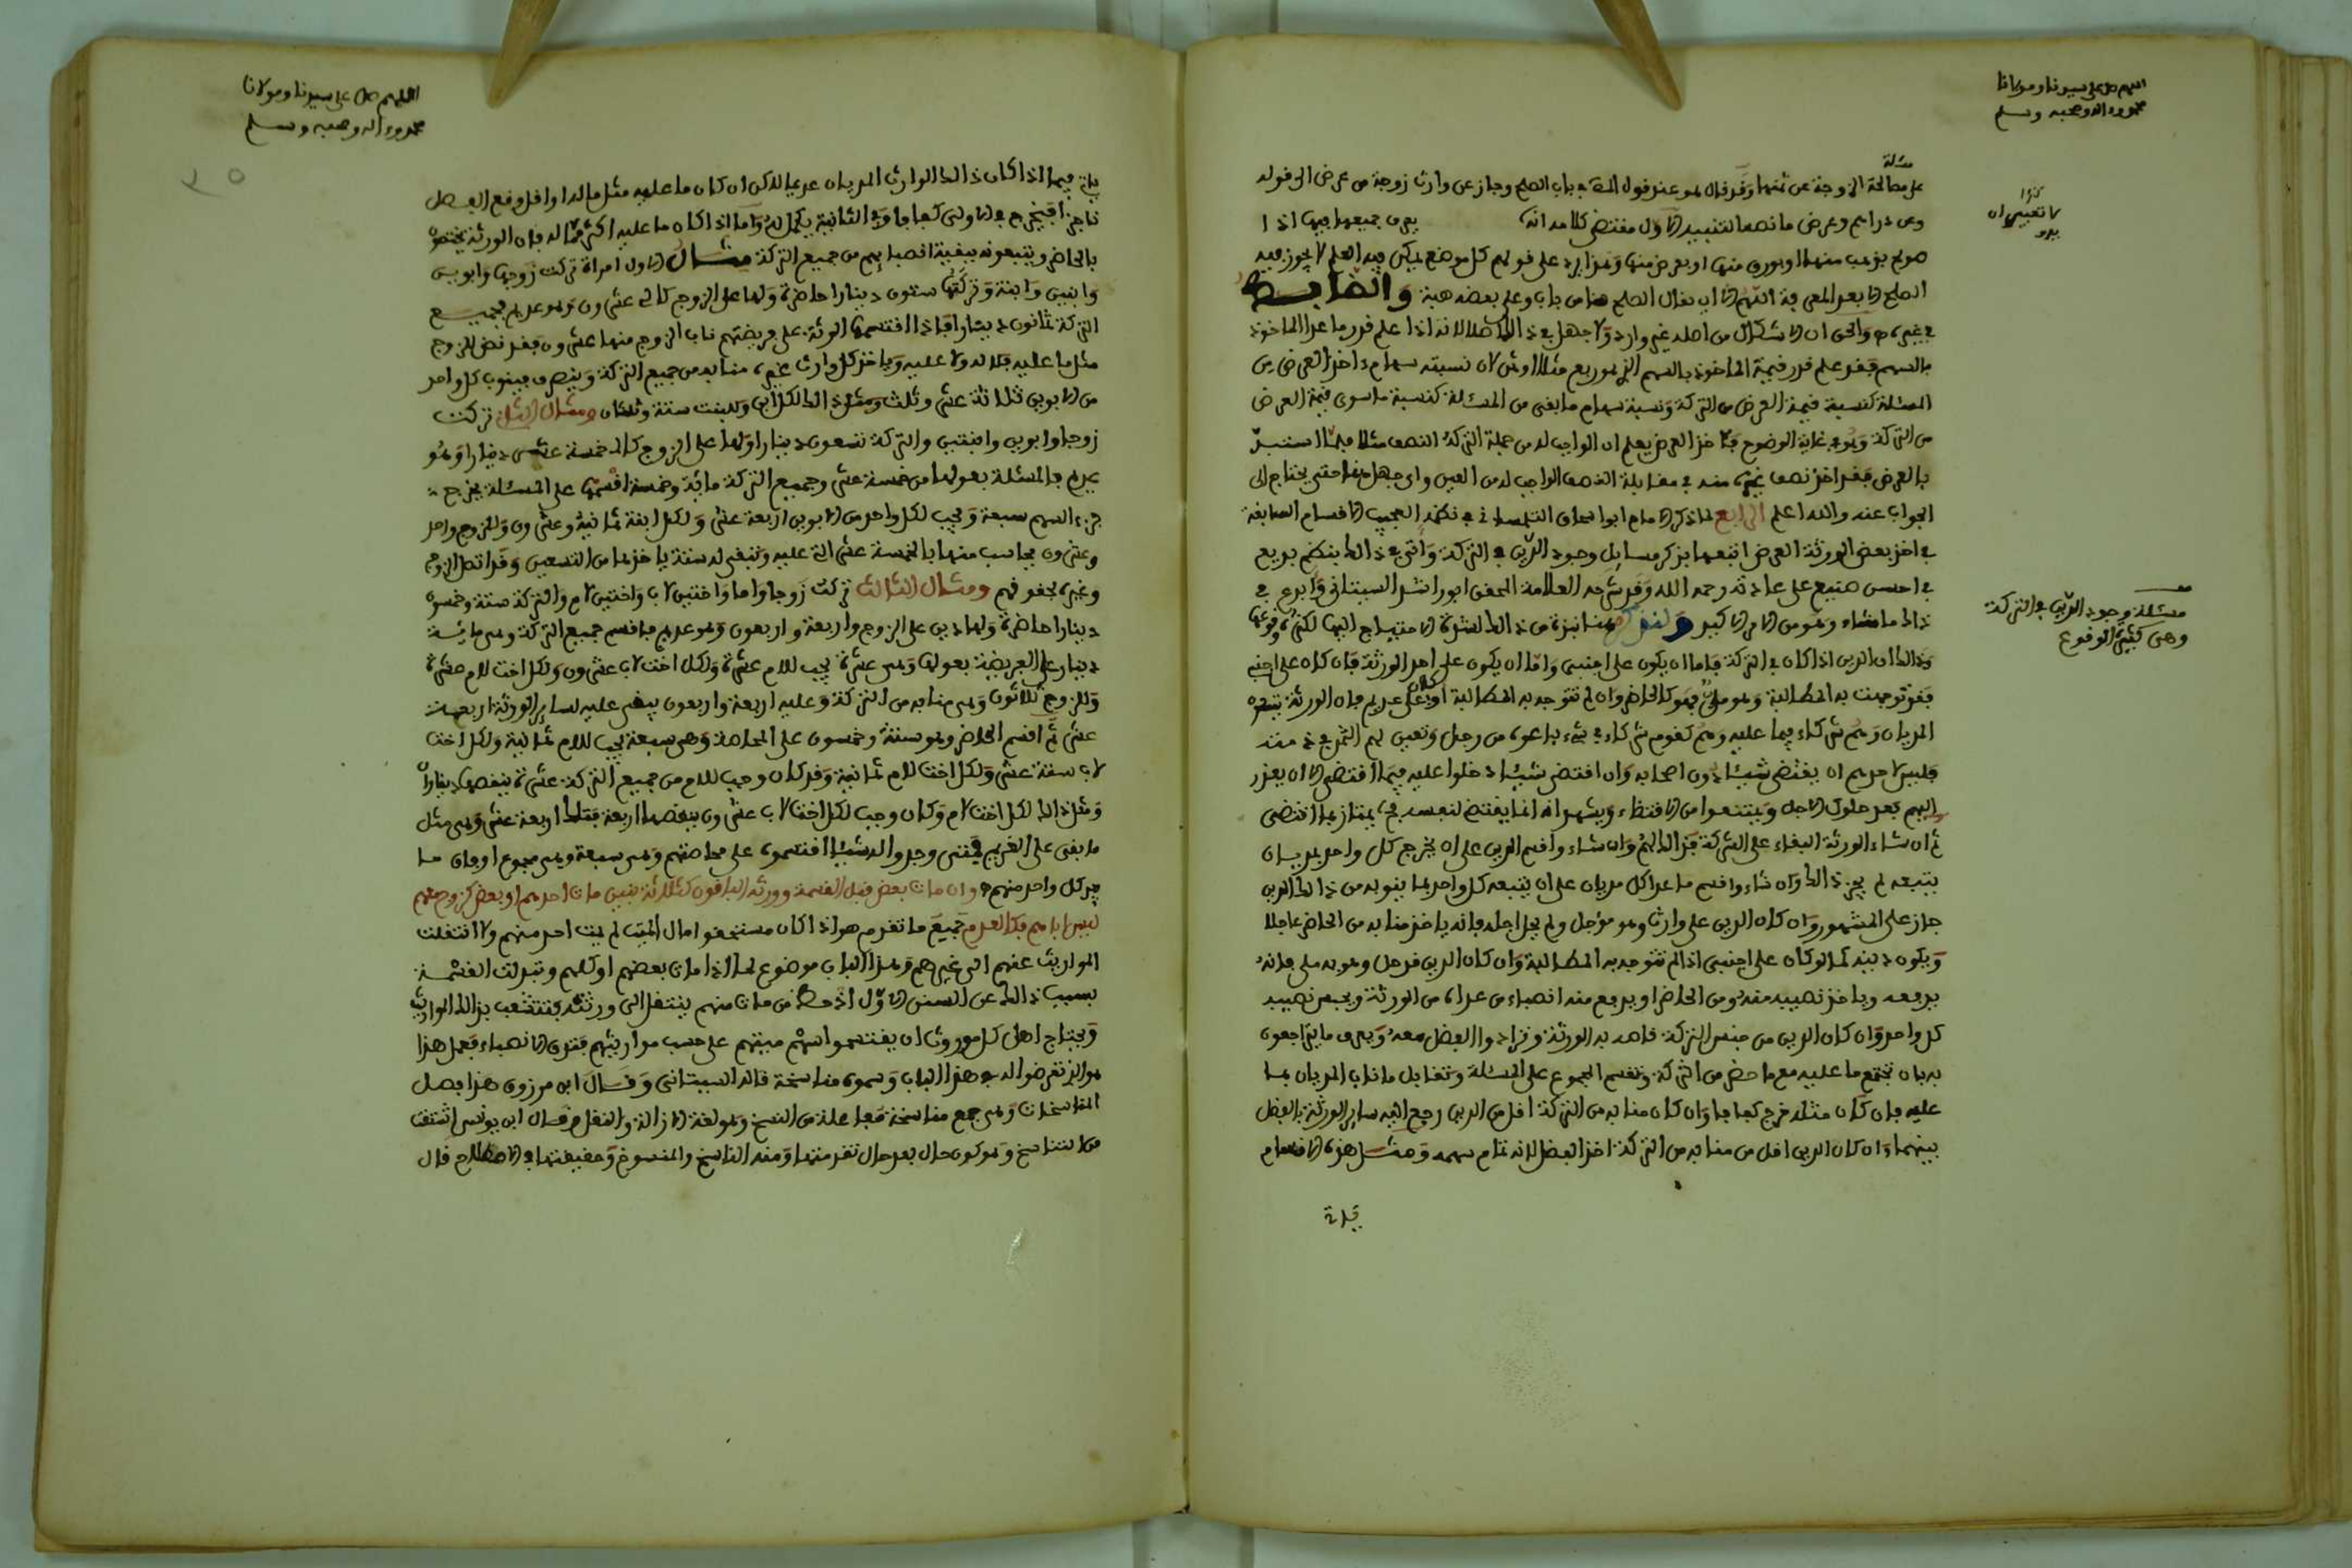 اللهم صل على سيدنا ومولانا
محمد وءاله وصحبه وسلم
مسئلة
على مصالحة الزوجة عن ثمنها وقد قال عند قول في باب الصلح وجاز عن وارث زوجة من عرض الى قوله
وعن دراهم وعرض ما نصه التنبيه الاول مقتضى كلامه انه يعرف جميعها فيها اذا
صولح بذهب منها او بورق منها او بعرض منها على قولهم كل موضع يمكن فيه العلم لا يجوز فيه
الصلح الا بعد المعرفة اللهم الا ان يقال الصلح هنا من باب وعلى بعضه هبة والضابط
في غيره والحق ان الاشكال من اصله غير وارد ولا جهل في ذلك اصلا لانه اذا علم قدر ما عدا الماخوذ
بالسهم فقد علم قدر قيمة الماخوذ بالسهم الذي هو ربع مثلا او ثمن لان نسبة سهام ءاخذ العرض من
المسئلة كنسبة قيمة العرض من التركة ونسبة سهام ما بقى من المسئلة كنسبة ما سوى قيمة العرض
من التركة وهو في غاية الوضوح فآخذ العرض يعلم ان الواجب له من جملة التركة النصف مثلا فلما استبد
بالعرض فقد اخذ نصف غيره منه في مقابلة النصف الواجب له من العين واى جهل هنا حتى يحتاج الى
الجواب عنه والله اعلم الرابع لما ذكر الامام ابو اسحاق التلمساني في نظمه العجيب الاقسام السابقة
في اخذ بعض الورثة العرض اتبعها بذكر مسايل وجود الدين في التركة واتى في ذلك بنظم بديع
في احسن صنيع على عادته رحمه الله وقد شرحه العلامة المحقق ابو راشد السيتاني وابدع في
ذلك ما شاء وهو من الامر الاكيد ولنذكر هنا نبذة من ذلك لشدة الاحتياج اليها لكثرة وقوعها
وذلك ان الدين اذا كان في التركة فاما ان يكون على اجنبى واما ان يكون على احد الورثة فان كان على اجنبى
فقد توجهت به المطالبة وهو ملى فهو كالحاضر وان لم تتوجه به المطالبة او كان على عديم فان الورثة يتبعون
المديان وهم شركاء فيما عليه وهم كقوم شركاء في شىء باعوه من رجل وتعين لهم الثمن في ذمته
فليس لاحدهم ان يقتضى شيئا دون اصحابه وان اقتضى شيئا دخلوا عليه فيما اقتضى الا ان يعذر
اليهم بعد حلول الاجل ويمتنعوا من الاقتضاء ويشهد انه انما يقتضى لنفسه فحينئذ يمتاز بما اقتضى
ثم ان شاء الورثة البقاء على الشركة فذلك لهم وان شاءوا قسم الدين على ان يخرج كل واحد بمديان
يتبعه لم يجز ذلك وان شاءوا قسم ما على كل مديان على ان يتبعه كل واحد بما ينوبه من ذلك الدين
جاز على المشهور وان كان الدين على وارث وهو مؤجل ولم يحل اجله فانه ياخذ منابه من الحاضر عاجلا
ويكون دينه كما لو كان على اجنبى اذا لم تتوجه به المطالبة وان كان الدين قد حل وهو به ملى فانه
يدفعه وياخذ نصيبه منه ومن الحاضر او يدفع منه انصباء من عداه من الورثة ويحبس نصيبه
كل واحد وان كان الدين من جنس التركة قاصه به الورثة وترادوا الفضل معه ويعرف ما يتراجعون
به بان تجمع ما عليه مع ما حضر من التركة وتقسم المجموع على المسئلة وتقابل ما ناب المديان بما
عليه فان كان مثله خرج كفافا وان كان منابه من التركة اقل من الدين رجع اليه ساير الورثة بالفضل
بينهما وان كان الدين اقل من منابه من التركة اخذ الفضل لانه تمام سهمه ومثل هذه الاقسام
كذا
لا تعيير ان
مسئلة وجود الدين في التركة
وهى كثيرة الوقوع
اللهم صل على سيدنا ومولانا
محمد وءاله وصحبه وسلم
ياتى فيما اذا كان ذلك الوارث المديان عديما لكن ان كان ما عليه مثل ما له او اقل وقع الفصل
ناجزا فيخرج في الاولى كفافا وفى الثانية يكمل له واما اذا كان ما عليه اكثر مما له فان الورثة يختصون
بالحاضر ويتبعونه ببقية انصبائهم من جميع التركة مثال الاول امراة تركت زوجها وابوين
وابنين وابنة وتركتها ستون دينارا حاضرة ولها على الزوج كالئ عشرون وهو عديم فجميع
التركة ثمانون دينارا فاذا اقتسمها الورثة على فريضتهم ناب الزوج منها عشرون فقد نض للزوج
مثل ما عليه فلا له ولا عليه وياخذ كل وارث غيره منابه من جميع التركة وينصرف فينوب كل واحد
من الابوين ثلاثة عشر وثلث ومثل ذلك لكل ابن وللبنت ستة وثلثان ومثال الثانى تركت
زوجا وابوين وابنتين والتركة تسعون دينارا ولها على الزوج كالئ خمسة عشر دينارا وهو
عديم فالمسئلة بعولها من خمسة عشر وجميع التركة مائة وخمسة اقسمها على المسئلة يخرج
جزء السهم سبعة ويجب لكل واحد من الابوين اربعة عشر ولكل ابنة ثمانية وعشرون وللزوج واحد
وعشرون يحاسب منها بالخمسة عشر التى عليه وتبقى له ستة ياخذها من التسعين وقد اتصل الزوج
وغيره بحقوقهم ومثال الثالث تركت زوجا واما واختين لاب واختين لام والتركة ستة وخمسون
دينارا حاضرة ولها دين على الزوج اربعة واربعون وهو عديم فاقسم جميع التركة وهى مائة
دينار على الفريضة بعولها وهى عشرة يجب للام عشرة ولكل اخت لاب عشرون ولكل اخت لام عشرة
وللزوج ثلاثون وهى منابه من التركة وعليه اربعة واربعون يبقى عليه لساير الورثة اربعة
عشر ثم اقسم الحاضر وهو ستة وخمسون على المحاصة وهى سبعة يجب للام ثمانية ولكل اخت
لاب ستة عشر ولكل اخت لام ثمانية وقد كان وجب للام من جميع التركة عشرة ينقصها ديناران
ومثل ذلك لكل اخت لام وكان وجب لكل اخت لاب عشرون ينقصها اربعة فتلك اربعة عشر وهى مثل
ما بقى على الغريم فمتى وجدوا له شيئا اقتسموه على محاصتهم وهى سبعة وهى مجموع اوفاق ما
بيد كل واحد منهم وان مات بعض قبل القسمة وورثه الباقون كثلاثة بنين مات احدهم او بعض كزوج معهم
ليس اباهم فكالعدم جميع ما تقدم هو اذا كان مستحقو مال الميت لم يمت احد منهم ولا انتقلت
المواريث عنهم الى غيرهم وهذا الباب موضوع لما اذا مات بعضهم او كلهم وتبدلت القسمة
بسبب ذلك عن السنن الاول اذ حظ من مات منهم ينتقل الى ورثته فتتشعب بذلك المواريث
ويحتاج اهل كل موروث ان يقتسموا سهم ميتهم على حسب مواريثهم فتدق الانصباء فعمل هذا
هو الذى تعرضوا له في هذا الباب وسموه مناسخة قاله السيتانى وقال ابن مرزوق هذا فصل
المناسخات وهى جمع مناسخة مفاعلة من النسخ وهو لغة الازالة والنقل وقال ابن يونس اشتقت
من التناسخ وهو كون حال بعد حال تقدمتها ومنه الناسخ والمنسوخ وحقيقتها في الاصطلاح قال